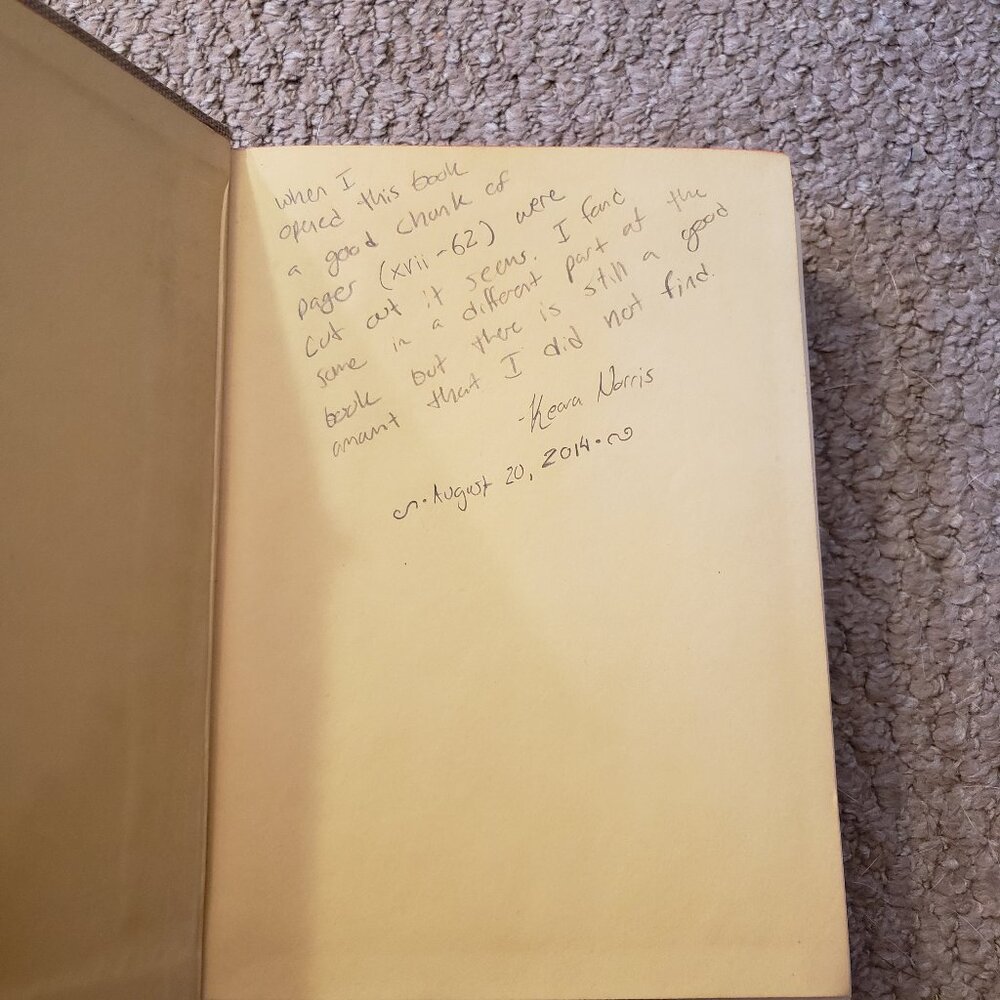 when I
opened this book
a good chunk of
pages (xvii-62) were
cut out it seems. I fond
some in a different part of the
book but there is still a good
amant that I did not find.
-Keara Norris
August 20, 2014